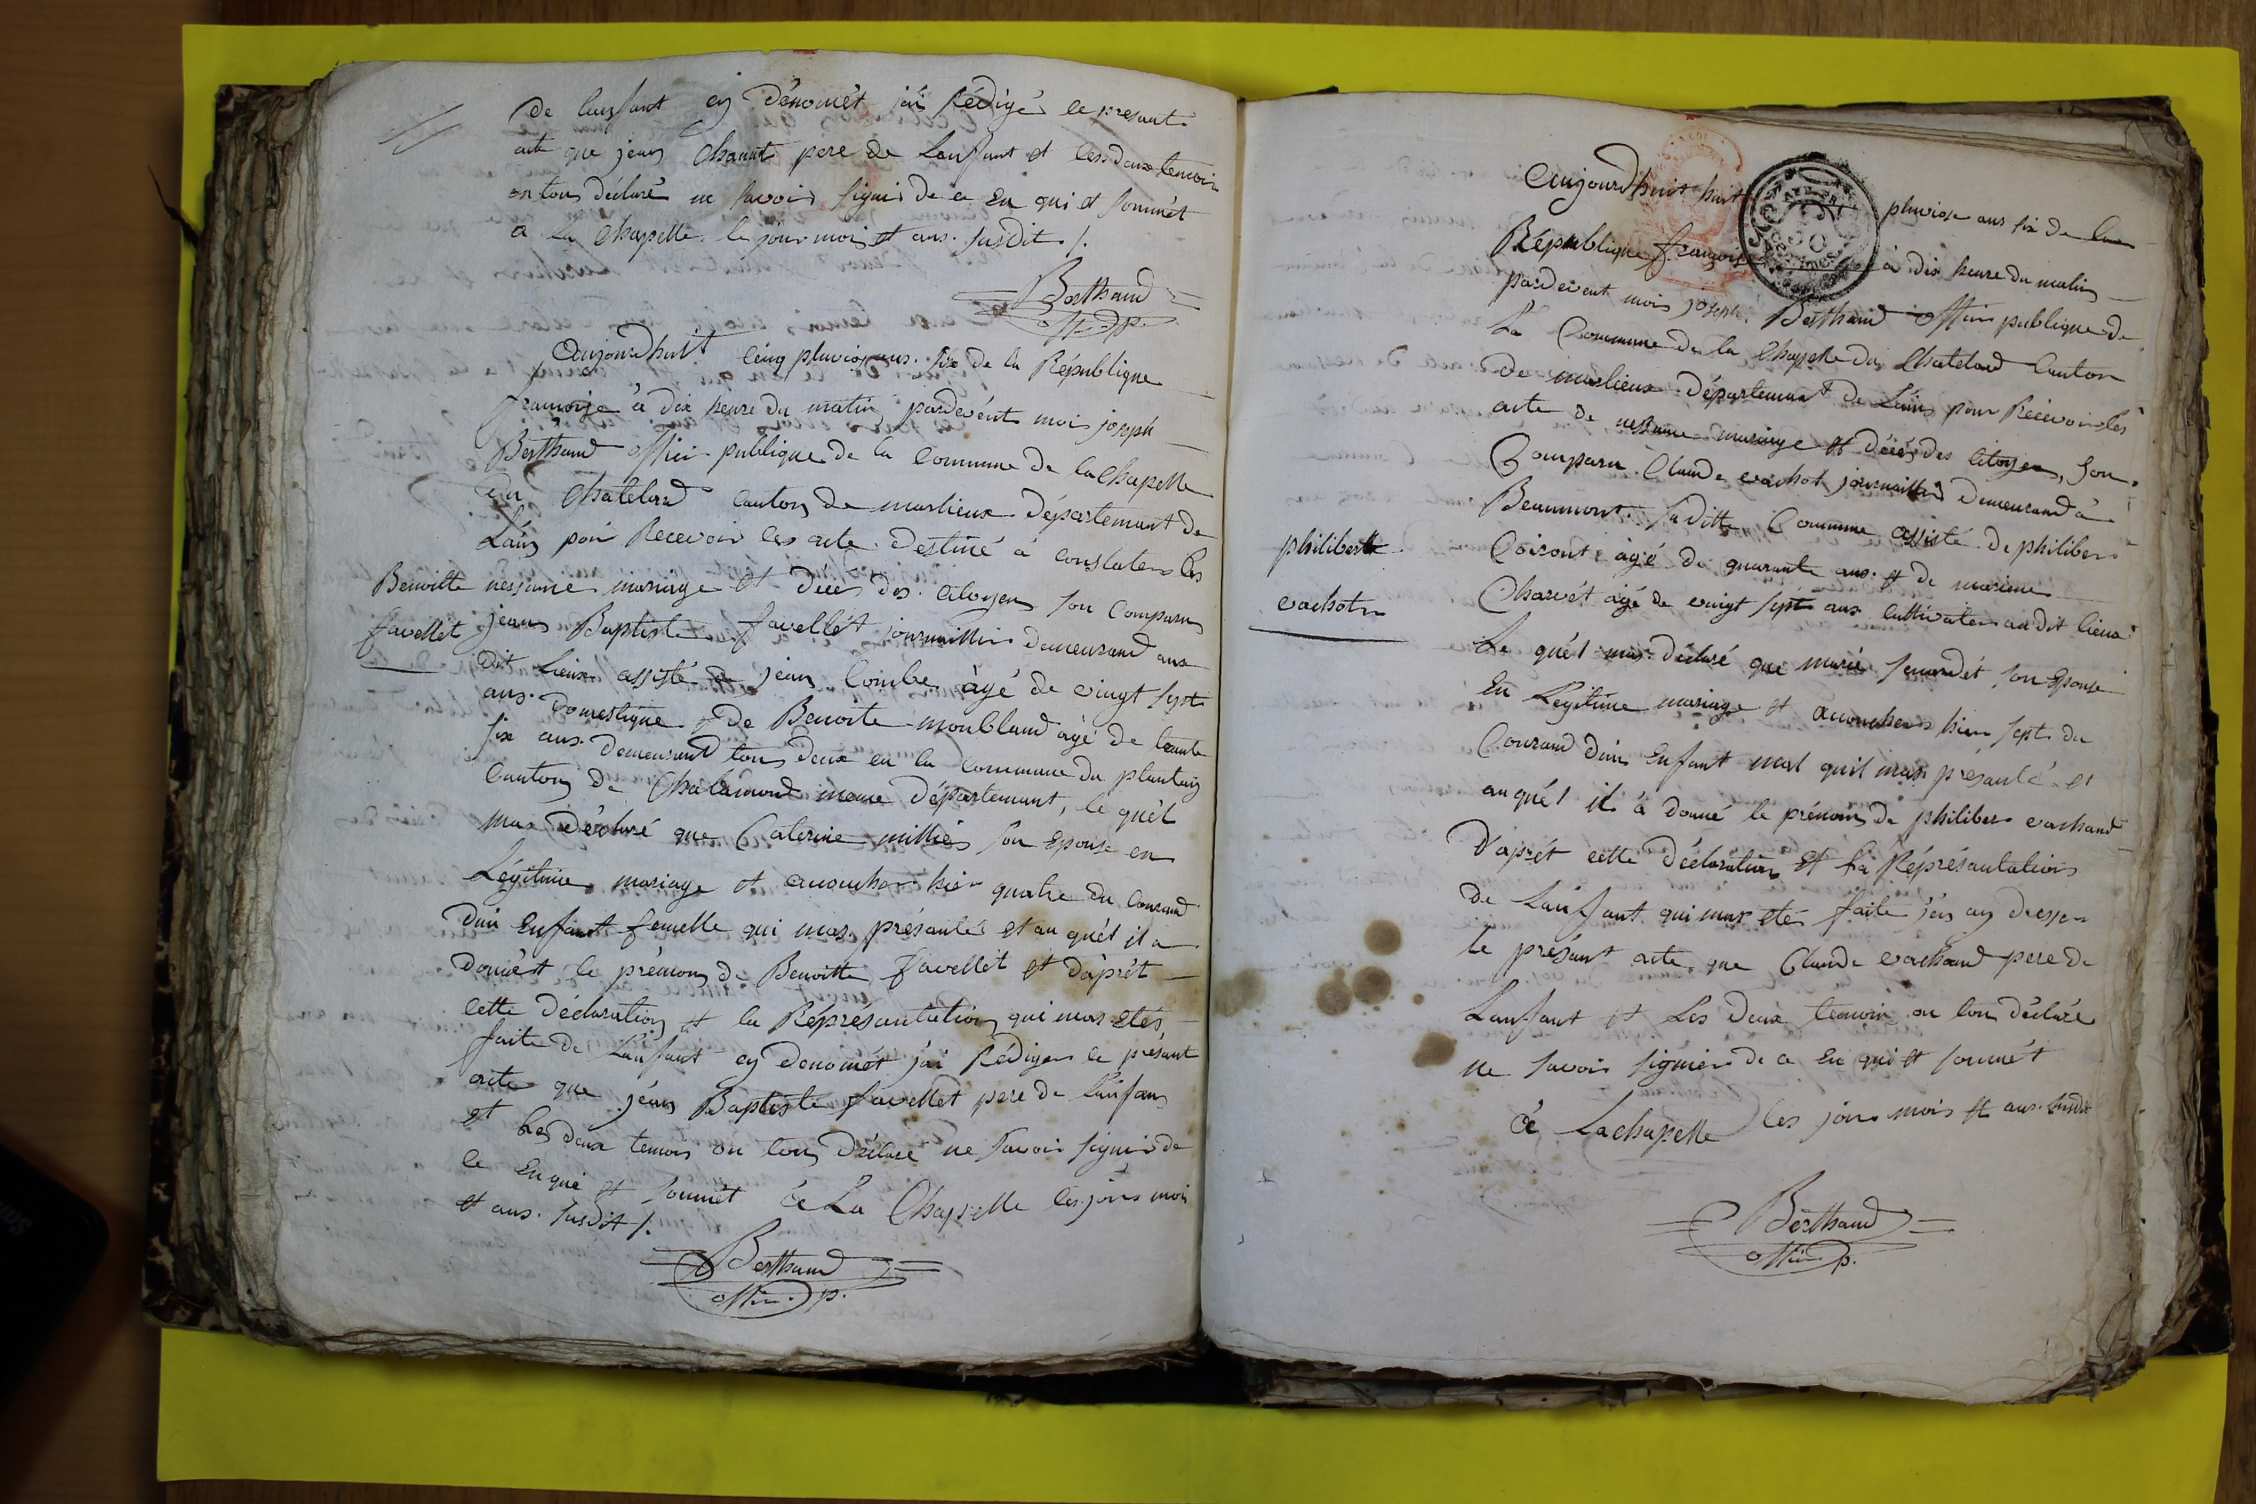 de lanfant cy dénomét jai Rédigé le presant
acte que jean Chanut père de Lanfant et les deux temoin
on tous déclaré ne savoir signié de ce En qui et sommét
a La Chapelle le jour mois et ans. susdit ./.
Berthaud
off. p.
Aujourdhuit Cinq pluviose ans. six de la République
francoise à dix heure du matin pardevént moi joseph
Berthaud officier publique de la Commune de la Chapelle
du Chatelard Canton de marlieux Département de
Lain pour Recevoir les acte Destiné à constater les
Benoitte nessance mariage et décés des Citoyens son Comparu
favellét jean Baptiste favellét journaillier demeurand aux
dit Lieux assisté de jean Combe âgé de vingt sept
ans. Domestique et de Benoite moubland âgé de trante
six ans. demeurand tous deux en la Commune du plantay
Canton de Chalamond meme Département, le quél
mas Déclaré que Caterine milliés son Epouse en
Légitime mariage et acoucher hier quatre du Courand
dun Enfant femelle qui mas présanté et au quél il a
donnést le prénom de Benoitte favellét et dáprét
cette déclaration et la Réprésantation qui mas étés
faite de Lanfant cy denomét jai Rédiger le présant
acte que jéan Baptiste favellét pere de Lanfan
et Les deux temoin on tous Déclaré ne savoir signié de
ce En qui et sommét à La Chapelle les jour mois
et ans. susdit ./.
Berthaud
offici. p.
Aujourdhuit huit pluviose ans six de la
République francoise à dix heure du matin
pardevent mois joseph Berthaud officier publique de
La Commune de la Chapelle du Chatelard Canton
de marlieux département de Lain pour Recevoir les
acte de nessance mariage et décés des Citoyen, son
Comparu Claude vachot journaillié Demeurand à
Beaumont susditte Commune assisté de philiber
philiberte Coisont âgé de quarante ans. et de
Charvét âgé de vingt sept ans cultivater au dit lieux
vachot Le quél mas déclaré que marie son Epouse
En Légitime mariage et acoucher hier sept du
Courand dun Enfant mal quil mas presanté et
au quél il à donné le prénom de philiber vachaud
D'aprét cette déclaration et la Réprésantation
de Lanfant qui mas étés faite jai cy dresser
le présant acte que Claude vachaud pere de
Lanfant et Les deux temoin on tous déclaré
ne savoir signier de ce En qui et sommét
à Lachapelle les jour mois et ans. susdit
Berthaud
offici p.